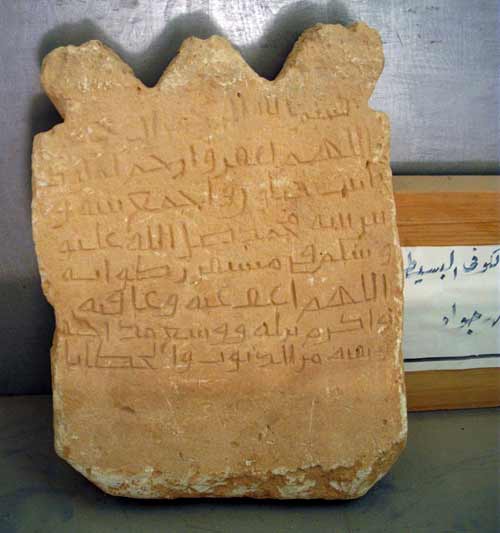 بسم الله الرحمن الرحيم
اللهم اغفر وارحم
واجمع بينه و
بين نبيه محمد صلى الله عليه
وسلم في مستقر رضوانه
اللهم اعف عنه وعافيه
واكرم نزله ووسع مدخله
ونقيه من الذنوب والخطايا
الكوفي البسيط
جواد